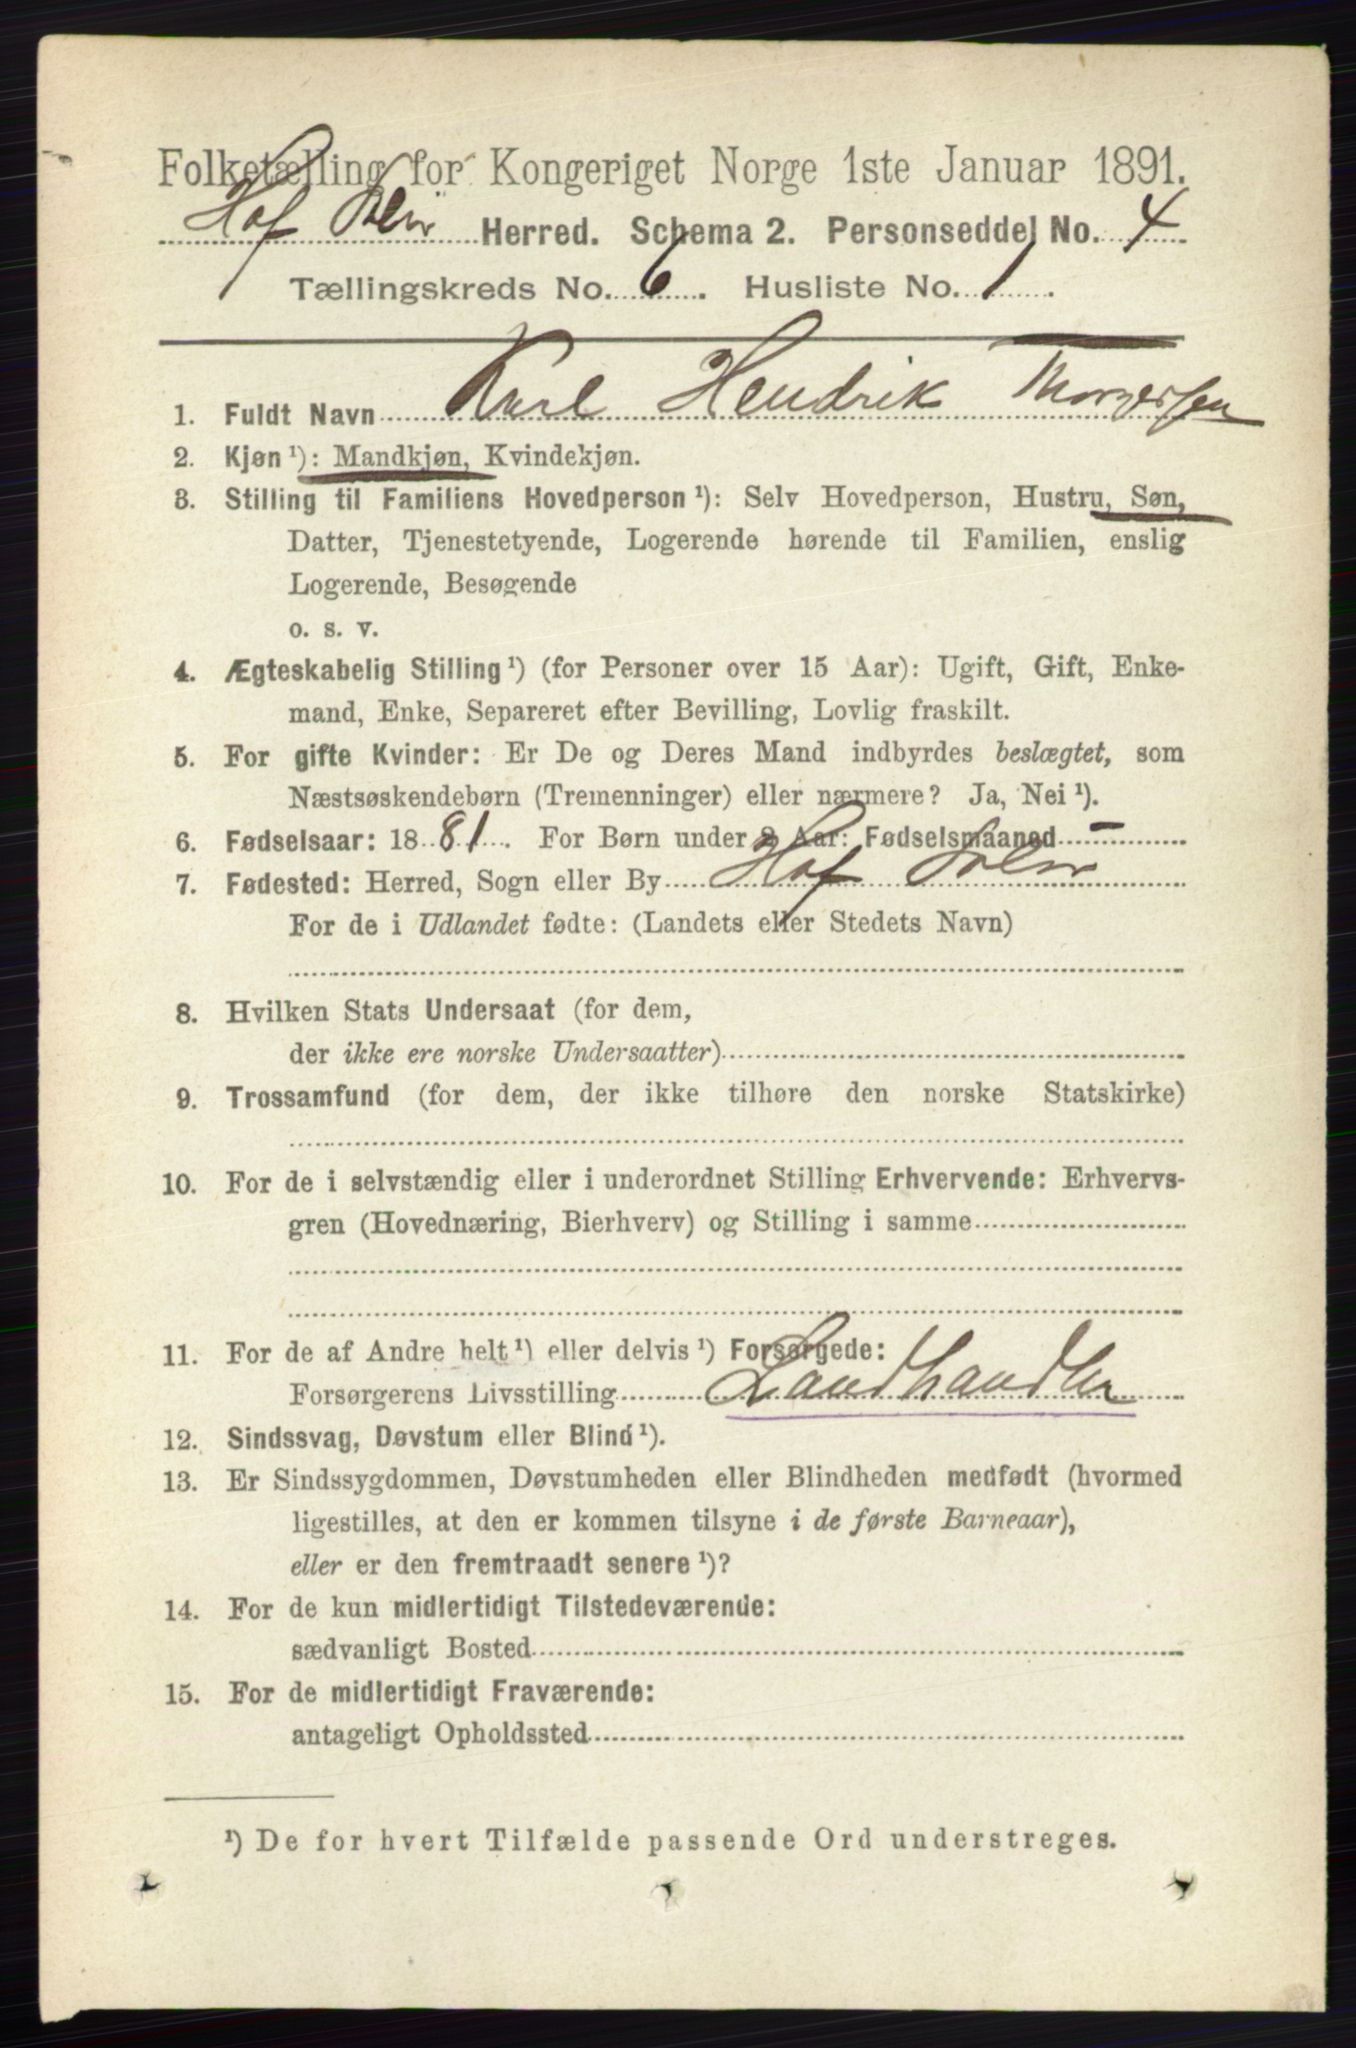 Folketælling for Kongeriget Norge 1ste Januar 1891.
Hof Solør Herred. Schema 2. Personseddel No. 4
Tællingskreds No. 6. Husliste No. 1.
1. Fuldt Navn Karl Hendrik
2. Kjøn ¹): Mandkjøn, Kvindekjøn.
3. Stilling til Familiens Hovedperson ¹): Selv Hovedperson, Hustru, Søn,
Datter, Tjenestetyende, Logerende hørende til Familien, enslig
Logerende, Besøgende
o. s. v.
4. Ægteskabelig Stilling ¹) (for Personer over 15 Aar): Ugift, Gift, Enke-
mand, Enke, Separeret efter Bevilling, Lovlig fraskilt.
5. For gifte Kvinder: Er De og Deres Mand indbyrdes beslægtet, som
Næstsøskendebørn (Tremenninger) eller nærmere? Ja, Nei ¹).
6. Fødselsaar: 1881. For Børn under 2 Aar: Fødselsmaaned –
7. Fødested: Herred, Sogn eller By Hof Solør
For de i Udlandet fødte: (Landets eller Stedets Navn)
8. Hvilken Stats Undersaat (for dem,
der ikke ere norske Undersaatter)
9. Trossamfund (for dem, der ikke tilhøre den norske Statskirke)
10. For de i selvstændig eller i underordnet Stilling Erhvervende: Erhvervs-
gren (Hovednæring, Bierhverv) og Stilling i samme
11. For de af Andre helt ¹) eller delvis ¹) Forsørgede:
Forsørgerens Livsstilling Landhandler
12. Sindssvag, Døvstum eller Blind ¹).
13. Er Sindssygdommen, Døvstumheden eller Blindheden medfødt (hvormed
ligestilles, at den er kommen tilsyne i de første Barneaar),
eller er den fremtraadt senere ¹)?
14. For de kun midlertidigt Tilstedeværende:
sædvanligt Bosted
15. For de midlertidigt Fraværende:
antageligt Opholdssted
¹) De for hvert Tilfælde passende Ord understreges.